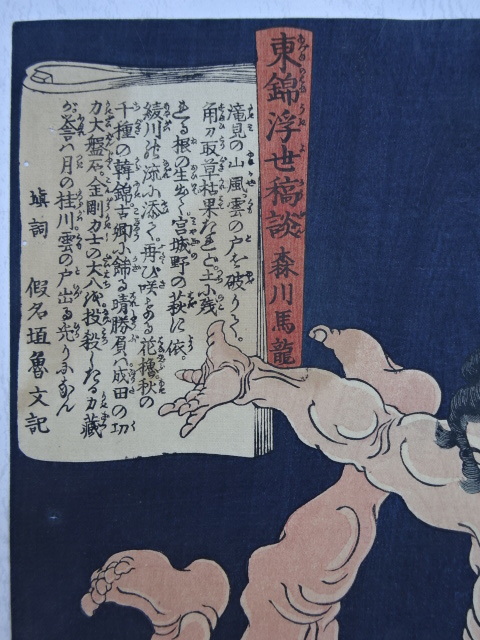 東錦浮世稿談 森川馬龍
滝見の山風雲の戸を破りて
角力取草枯果たれと土小残
れる根の生出て宮城野の萩に依
綾川の流小添て再び咲ある花穂秋の
千種の韓錦古郷小錺る晴勝負八成田の功
力大盤石金剛力士の大八を投殺したる力蔵
が誉八月の桂川雲の戸出る光りになん
填詞 假名垣魯文記